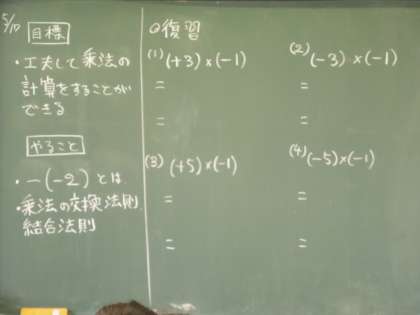 5/10
目標
・工夫して乗法の
計算をすることが
できる
やること
・-(-2)とは
・乗法の交換法則
結合法則
◎復習
(1) (+3)×(-1)
=
=
(2) (-3)×(-1)
=
=
(3) (+5)×(-1)
=
=
(4) (-5)×(-1)
=
=